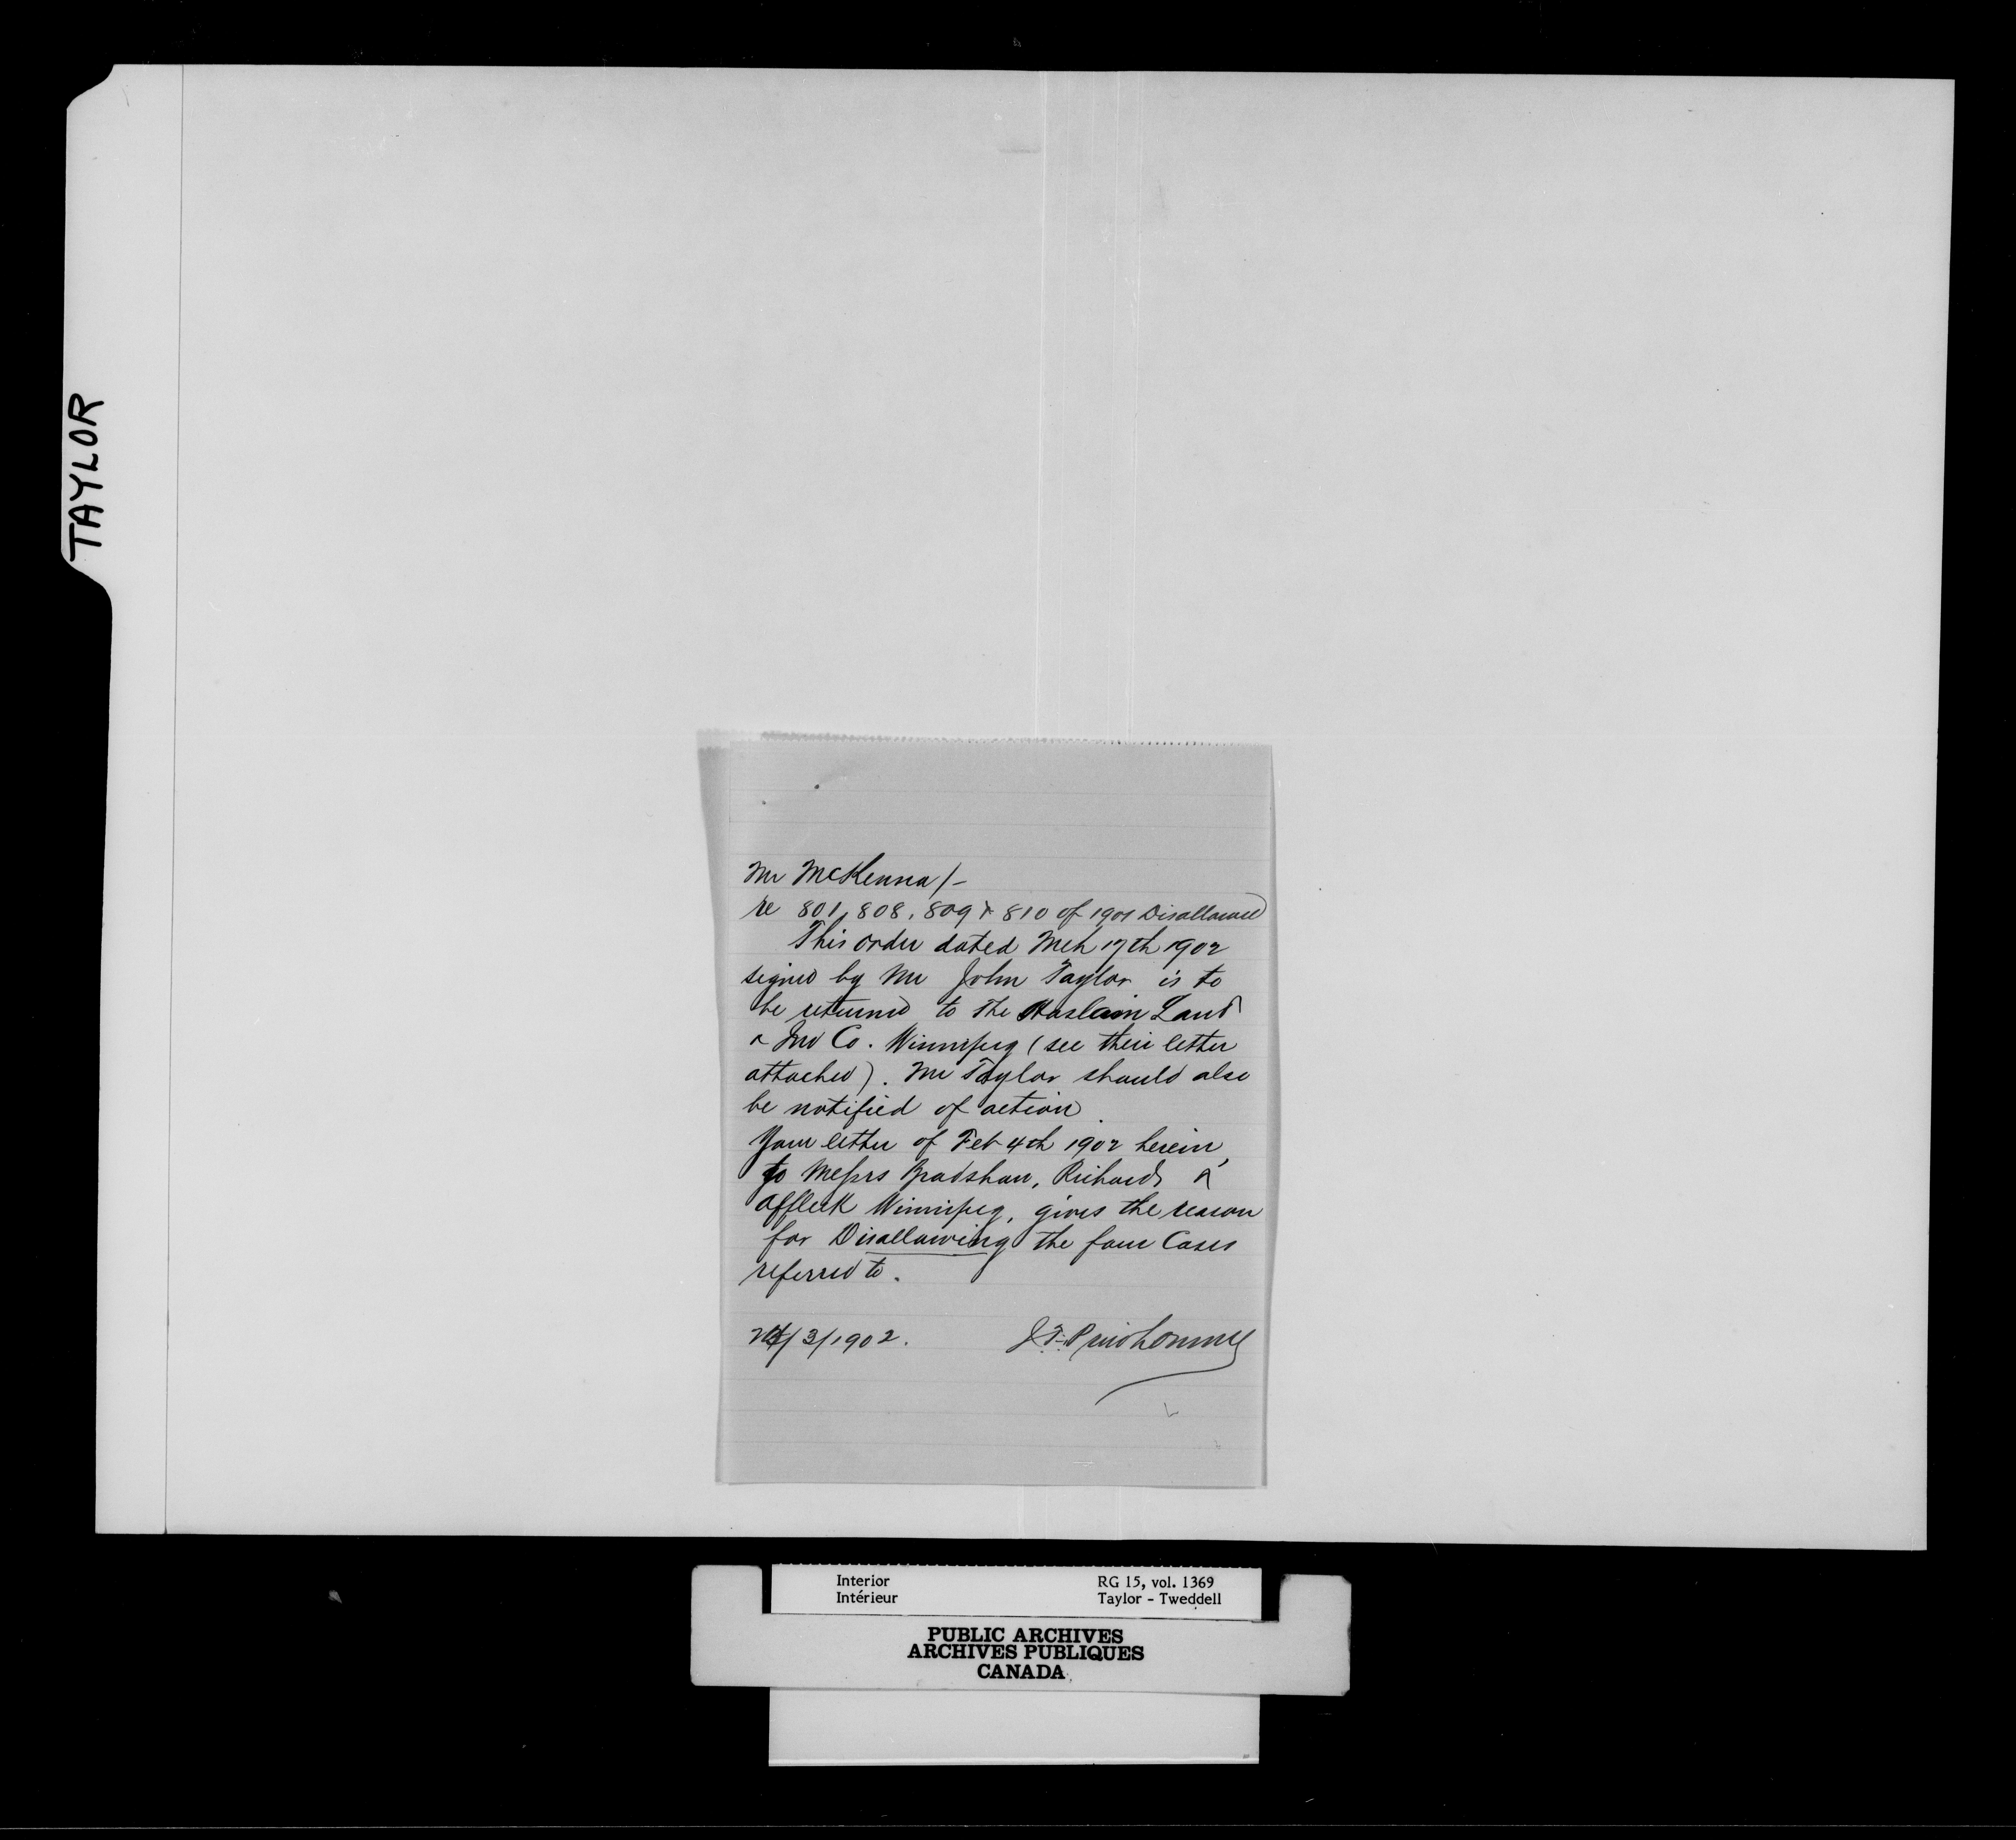 TAYLOR
Mr McKenna/-
re 801, 808, 809 & 810 of 1901 Disallowed
This order dated Mch 17th 1902
signed by Mr John Taylor is to
be returned to The Haslam Land
& Inv Co. Winnipeg (see their letter
attached). Mr Taylor should also
be notified of action
Your letter of Feb 4th 1902 herein,
to Messrs Bradshaw, Richards &
Affleck Winnipeg, gives the reason
for Disallowing the four Cases
referred to.
/3/1902. J.F. Prudhomme
Interior RG 15, vol. 1369
Intérieur Taylor - Tweddell
PUBLIC ARCHIVES
ARCHIVES PUBLIQUES
CANADA